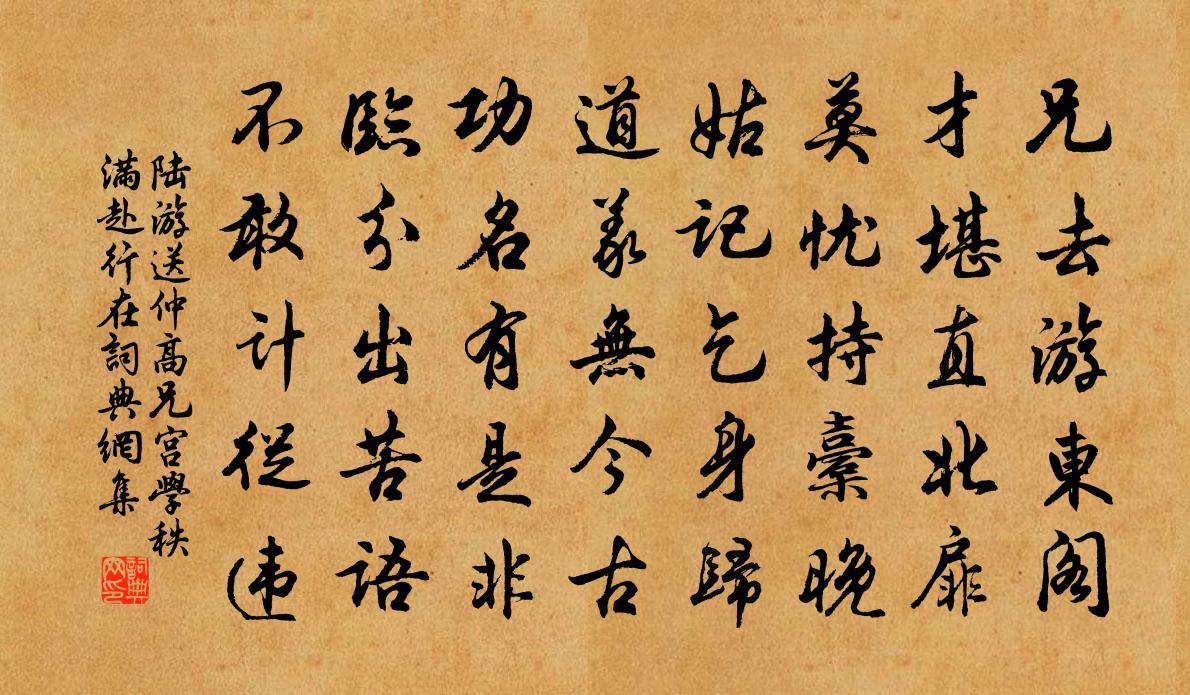 兄去游東閣
才堪直北扉
莫忧持橐晚
姑記乞身歸
道義無今古
功名有是非
臨分出苦語
不敢計從违
陸游送仲高兄宮學秩
滿赴行在詞典網集
詞典网印